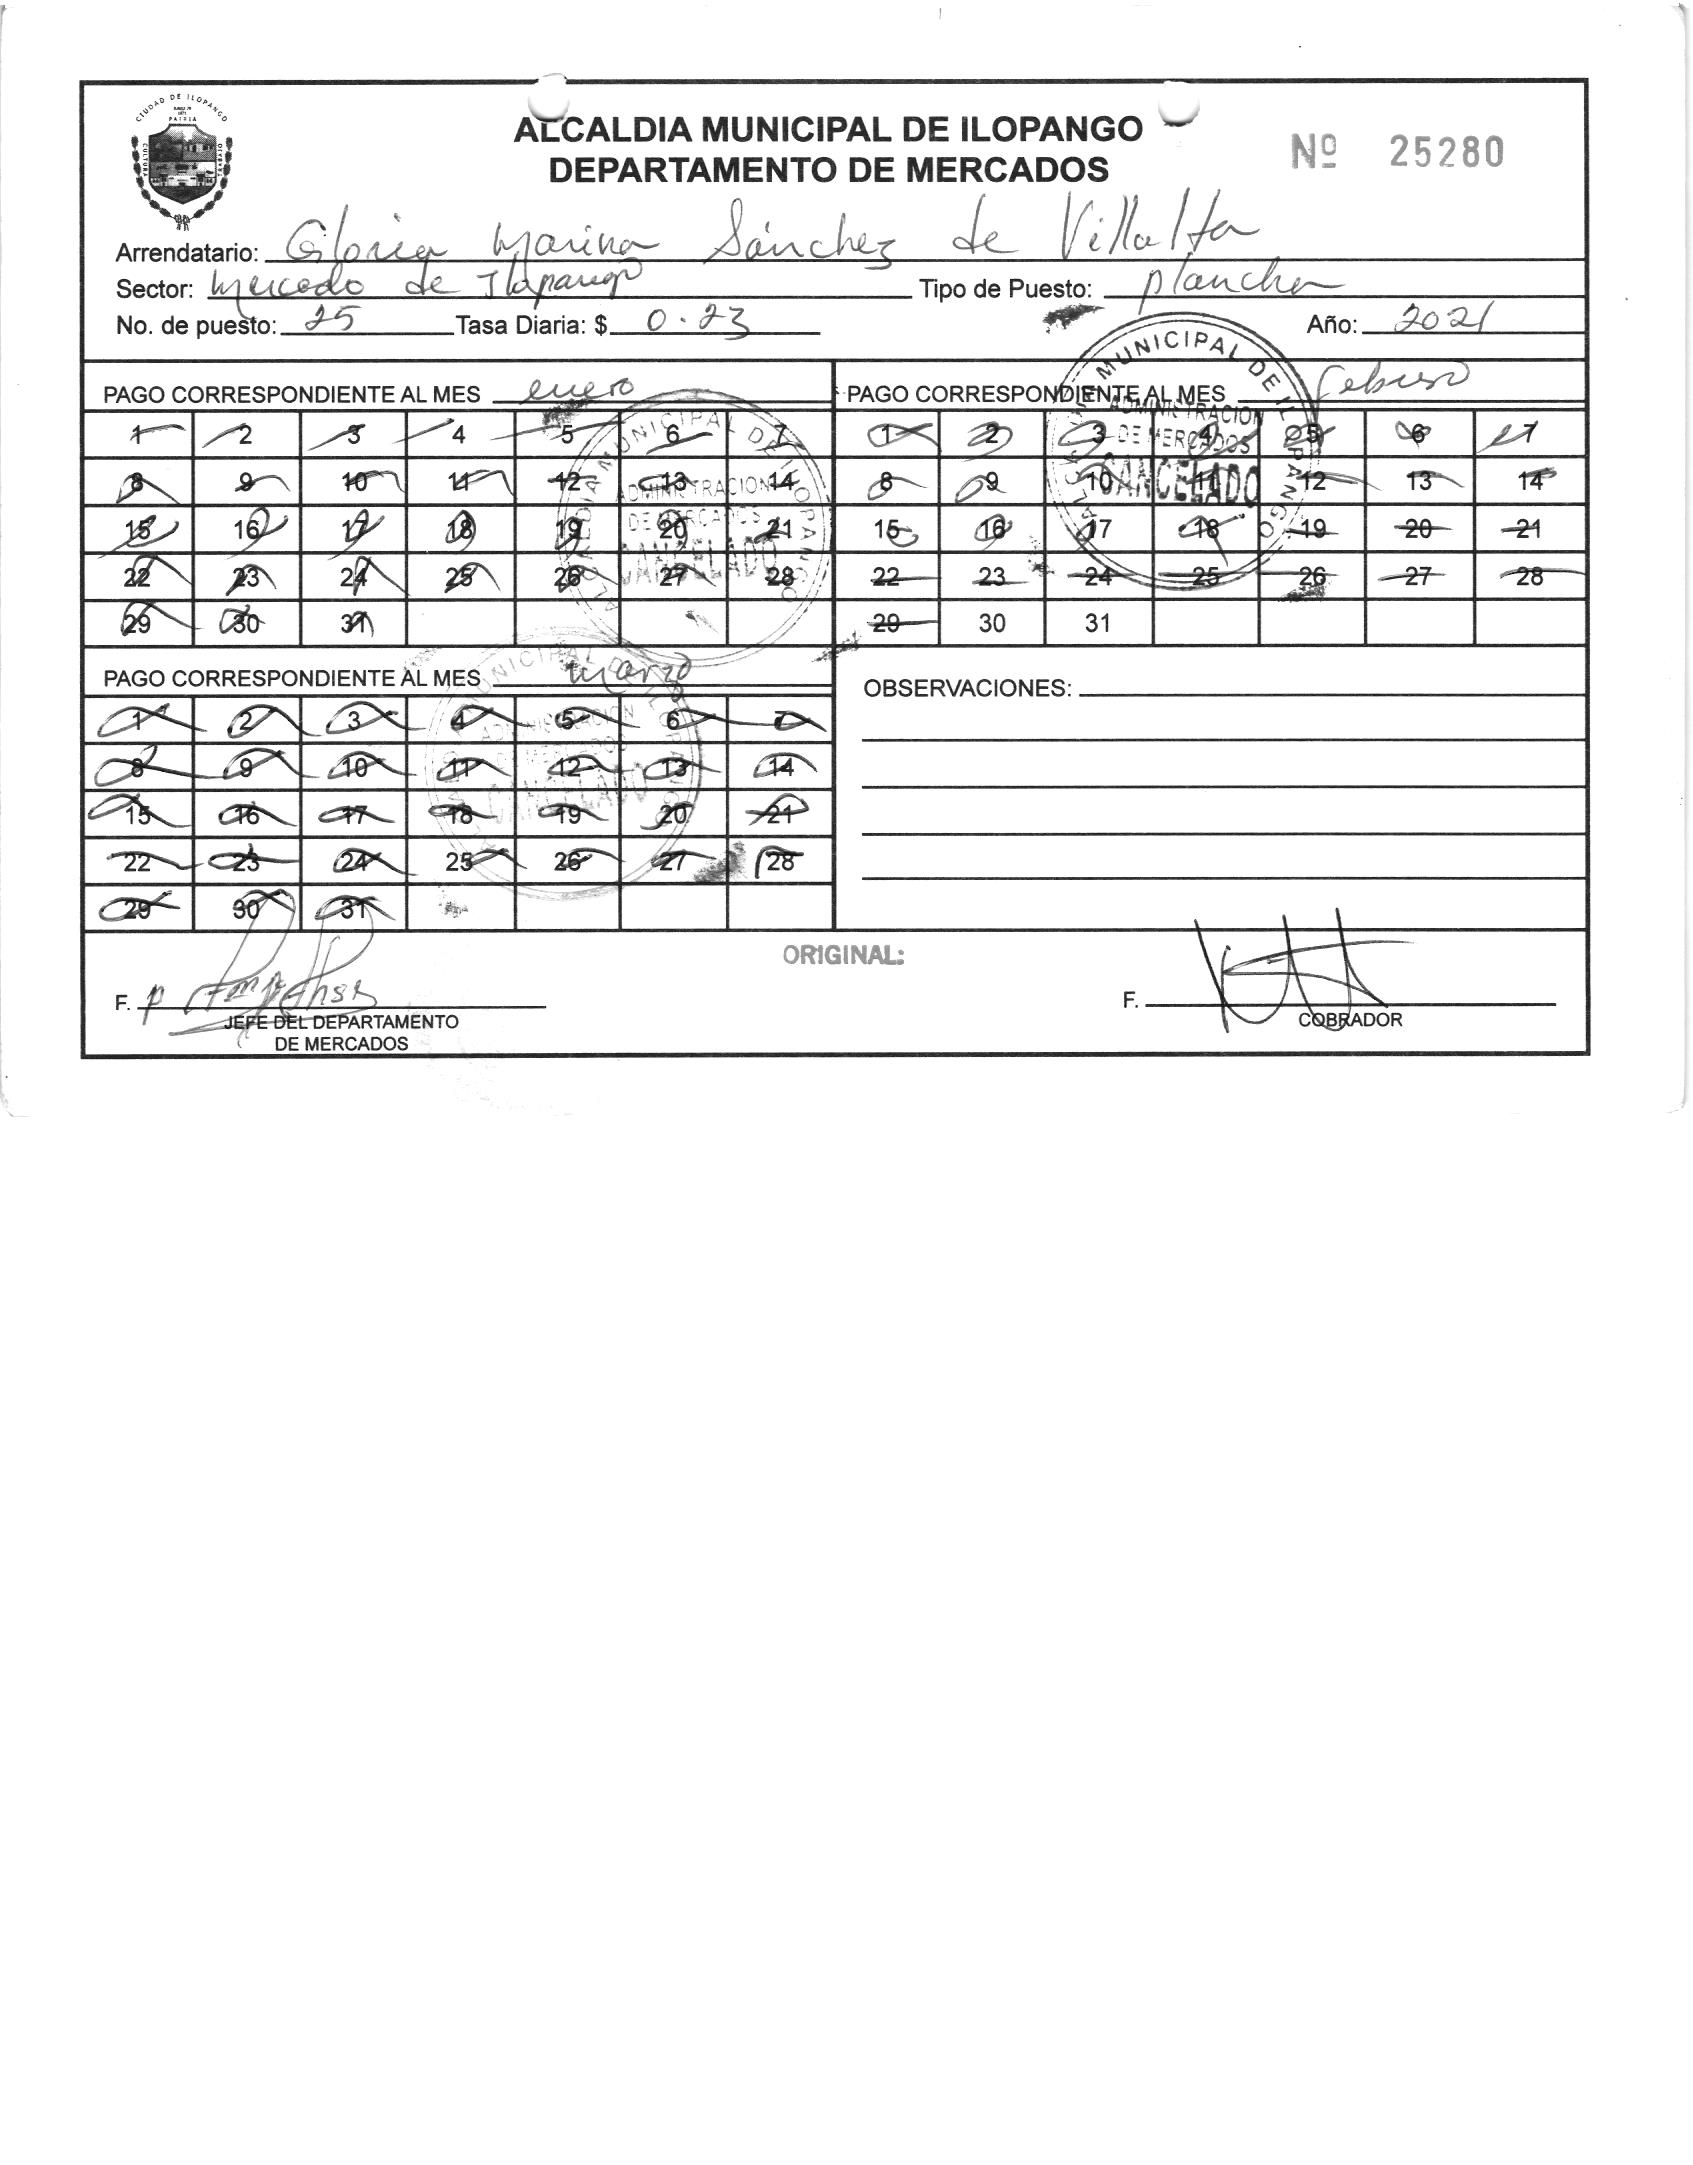 CIUDAD DE ILOPANGO
PATRIA
CULTURA
ALCALDIA MUNICIPAL DE ILOPANGO
DEPARTAMENTO DE MERCADOS
Nº 25280
Arrendatario: Gloria Marina Sánchez de Villalta
Sector: Mercado de Ilopango Tipo de Puesto: plancha
No. de puesto: 25 Tasa Diaria: $ 0.23 Año: 2021
PAGO CORRESPONDIENTE AL MES enero
1 2 3 4 5 6 7
8 9 10 11 12 13 14
15 16 17 18 19 20 21
22 23 24 25 26 27 28
29 30 31
ALCALDIA MUNICIPAL DE ILOPANGO
ADMINISTRACION
DE MERCADOS
CANCELADO
PAGO CORRESPONDIENTE AL MES febrero
1 2 3 4 5 6 7
8 9 10 11 12 13 14
15 16 17 18 19 20 21
22 23 24 25 26 27 28
29 30 31
ALCALDIA MUNICIPAL DE ILOPANGO
ADMINISTRACION
DE MERCADOS
CANCELADO
PAGO CORRESPONDIENTE AL MES marzo
1 2 3 4 5 6 7
8 9 10 11 12 13 14
15 16 17 18 19 20 21
22 23 24 25 26 27 28
29 30 31
ALCALDIA MUNICIPAL DE ILOPANGO
ADMINISTRACION
DE MERCADOS
CANCELADO
OBSERVACIONES:
ORIGINAL:
F.
JEFE DEL DEPARTAMENTO
DE MERCADOS
F.
COBRADOR